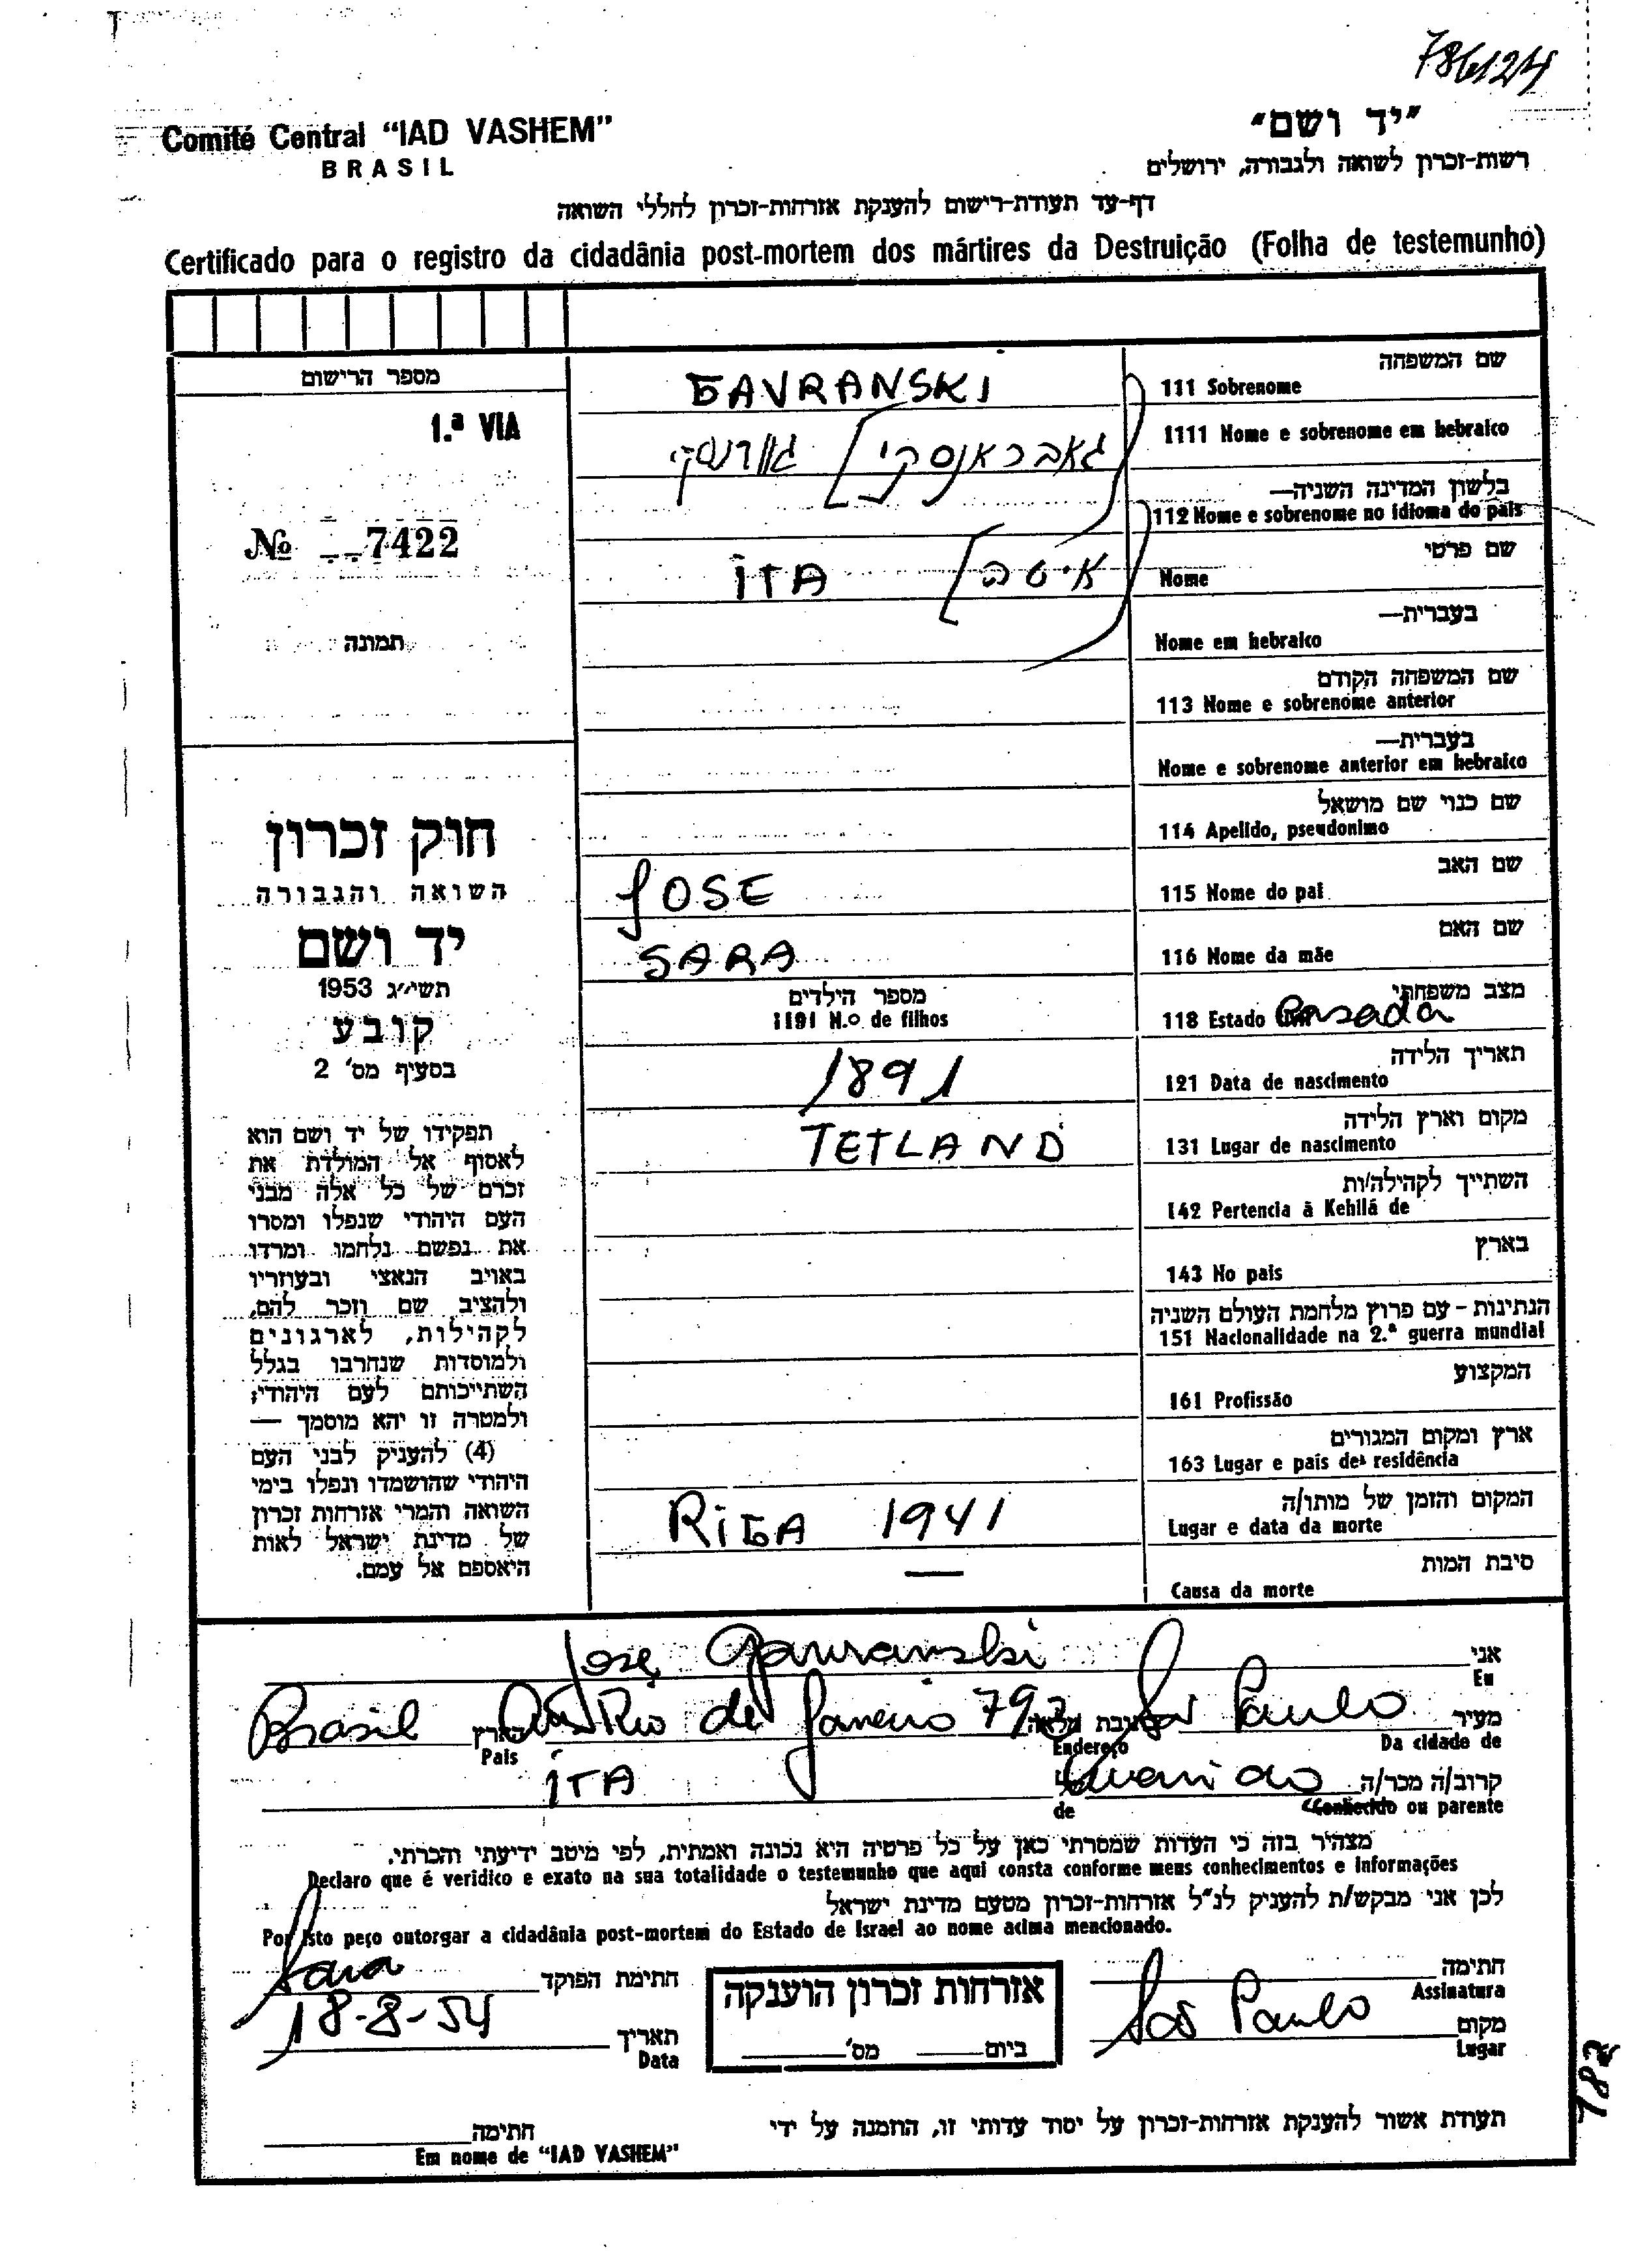 786124
Comité Central “IAD VASHEM”
BRASIL
"יד ושם"
רשות-זכרון לשואה ולגבורה, ירושלים
דף-עד תעודת-רישום להענקת אזרחות-זכרון לחללי השואה
Certificado para o registro da cidadânia post-mortem dos mártires da Destruição (Folha de testemunho)
מספר הרישום
1.ª VIA
№ 7422
תמונה
חוק זכרון
השואה והגבורה
יד ושם
תשי״ג 1953
קובע
בסעיף מס' 2
תפקידו של יד ושם הוא
לאסוף אל המולדת את
זכרם של כל אלה מבני
העם היהודי שנפלו ומסרו
את נפשם נלחמו ומרדו
באויב הנאצי ובעוזריו
ולהציב שם וזכר להם,
לקהילות, לארגונים
ולמוסדות שנחרבו בגלל
השתייכותם לעם היהודי;
ולמטרה זו יהא מוסמך —
(4) להעניק לבני העם
היהודי שהושמדו ונפלו בימי
השואה והמרי אזרחות זכרון
של מדינת ישראל לאות
היאספם אל עמם.
שם המשפחה
111 Sobrenome GAVRANSKI
1111 Nome e sobrenome em hebraico
גאבראנסקי] גוורנסקי
בלשון המדינה השניה—
112 Nome e sobrenome no idioma do pais
שם פרטי
Nome ITA [איטה
בעברית—
Nome em hebraico
שם המשפחה הקודם
113 Nome e sobrenome anterior
בעברית—
Nome e sobrenome anterior em hebraico
שם כנוי שם מושאל
114 Apelido, pseudonimo
שם האב
115 Nome do pai JOSE
שם האם
116 Nome da mãe SARA
מצב משפחתי
118 Estado Civil Casada
מספר הילדים
1191 N.º de filhos
תאריך הלידה
121 Data de nascimento 1891
מקום וארץ הלידה
131 Lugar de nascimento TETLAND
השתייך לקהילה/ות
142 Pertencia à Kehilá de
בארץ
143 No pais
הנתינות - עם פרוץ מלחמת העולם השניה
151 Nacionalidade na 2.ª guerra mundial
המקצוע
161 Profissão
ארץ ומקום המגורים
163 Lugar e pais de residência
המקום והזמן של מותו/ה
Lugar e data da morte RIGA 1941
סיבת המות
Causa da morte —
אני
Eu José Gavranski
מעיר
Da cidade de São Paulo
Endereço Rio de Janeiro 792
הארץ
Pais Brasil
קרוב/ה מכר/ה
Conhecido ou parente
de ITA
מצהיר בזה כי העדות שמסרתי כאן על כל פרטיה היא נכונה ואמתית, לפי מיטב ידיעתי והכרתי.
Declaro que é veridico e exato na sua totalidade o testemunho que aqui consta conforme meus conhecimentos e informações
לכן אני מבקש/ת להעניק לנ"ל אזרחות-זכרון מטעם מדינת ישראל
Por isto peço outorgar a cidadânia post-mortem do Estado de Israel ao nome acima mencionado.
חתימה
Assinatura
מקום
Lugar São Paulo
אזרחות זכרון הוענקה
ביום מס'
חתימת הפוקד Sara
תאריך
Data 18-8-54
782
תעודת אשור להענקת אזרחות-זכרון על יסוד עדותי זו, הוזמנה על ידי
חתימה
Em nome de “IAD VASHEM”